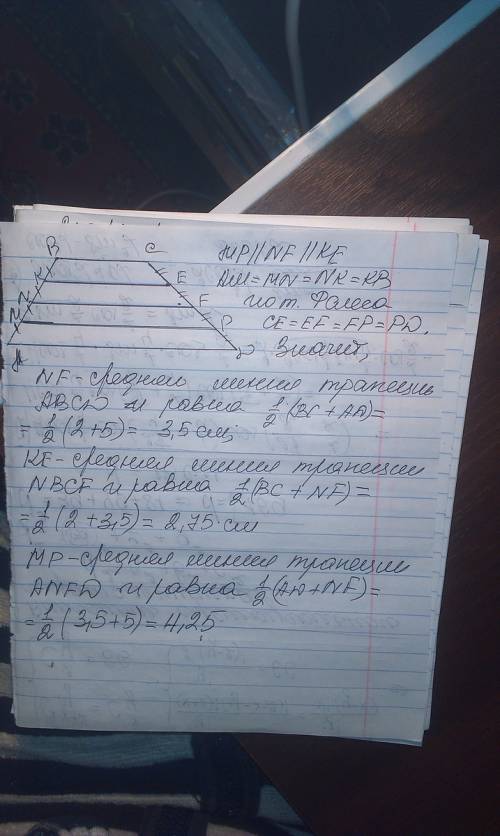 B C
K E
N F
M P
A D
MP || NF || KE
AM = MN = NK = KB
по т. Фалеса
CE = EF = FP = PD.
Значит,
NF - средняя линия трапеции
ABCD и равна 1/2 (BC + AD) =
= 1/2 (2+5) = 3,5 см;
KE - средняя линия трапеции
NBCF и равна 1/2 (BC + NF) =
= 1/2 (2+3,5) = 2,75 см
MP - средняя линия трапеции
ANFD и равна 1/2 (AD + NF) =
= 1/2 (3,5+5) = 4,25